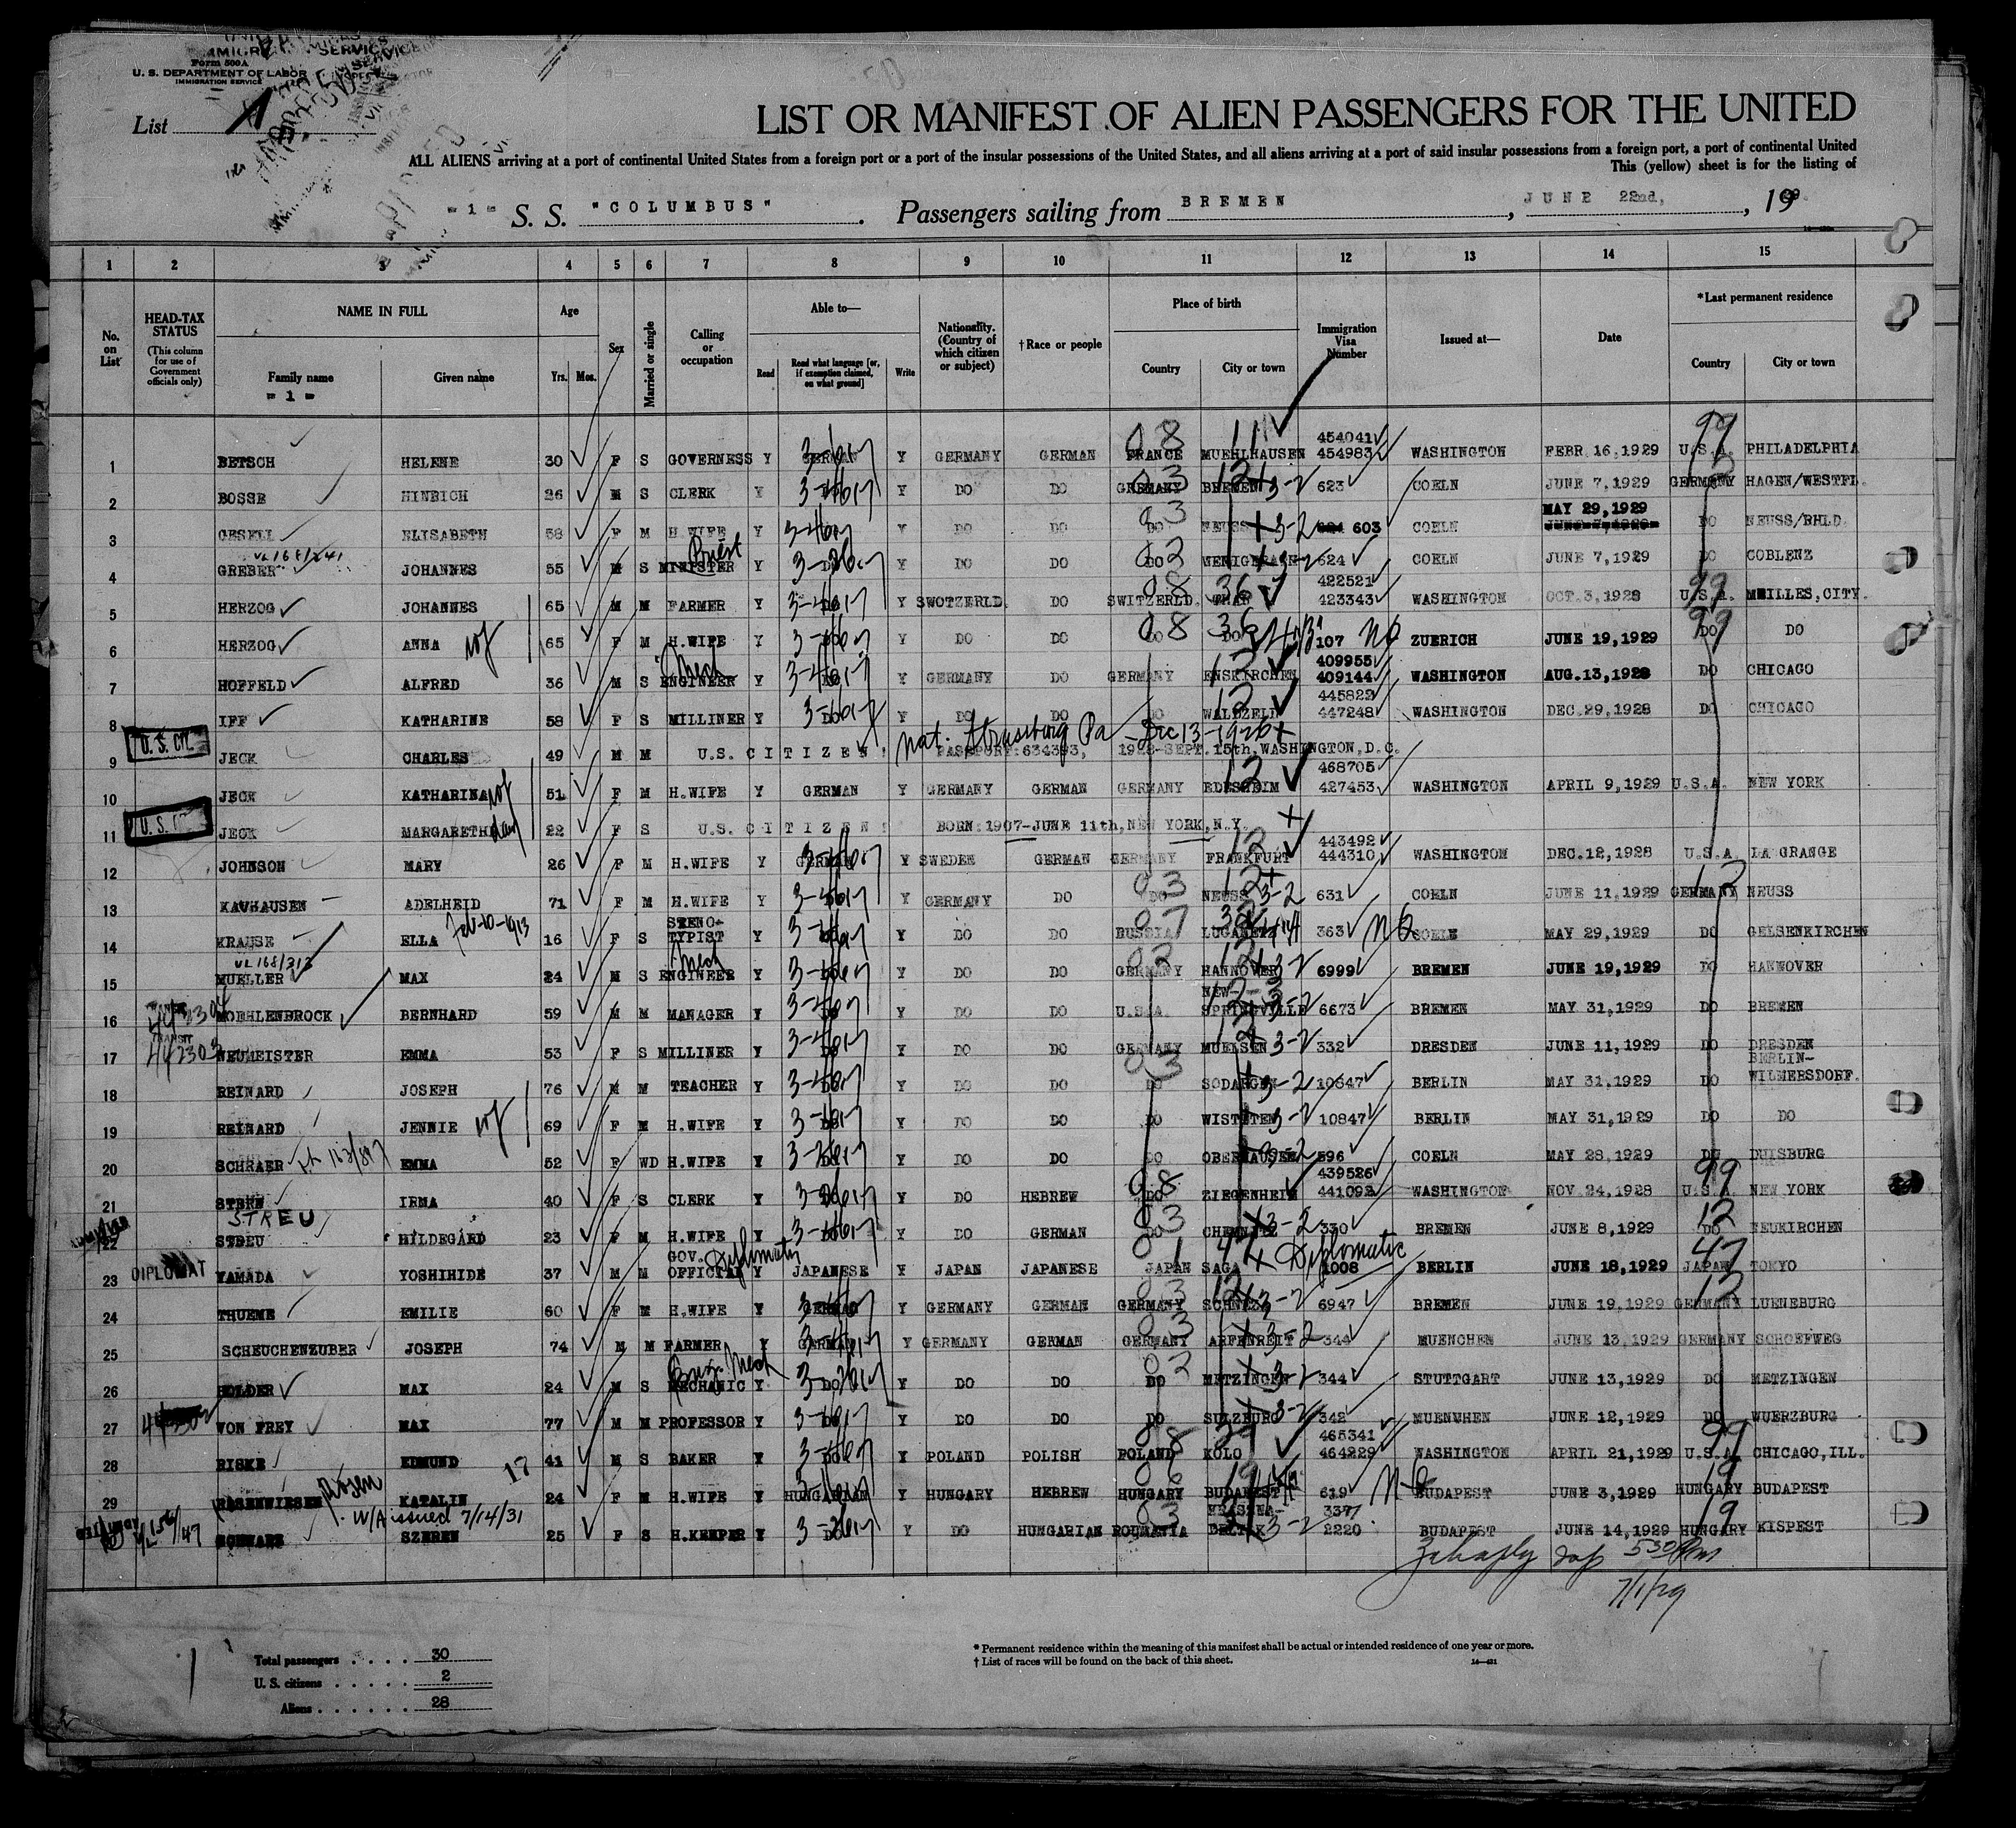 IMMIGRATION SERVICE
Form 500A
U. S. DEPARTMENT OF LABOR
IMMIGRATION SERVICE
List 1
LIST OR MANIFEST OF ALIEN PASSENGERS FOR THE UNITED
ALL ALIENS arriving at a port of continental United States from a foreign port or a port of the insular possessions of the United States, and all aliens arriving at a port of said insular possessions from a foreign port, a port of continental United
This (yellow) sheet is for the listing of
- 1 - S. S. "COLUMBUS". Passengers sailing from BREMEN, JUNE 22nd, 19
1 2 3 4 5 6 7 8 9 10 11 12 13 14 15
No. on List
HEAD-TAX STATUS (This column for use of Government officials only)
NAME IN FULL
Family name Given name
- 1 -
Age Yrs. Mos.
Sex
Married or single
Calling or occupation
Able to—
Read Read what language [or, if exemption claimed, on what ground] Write
Nationality. (Country of which citizen or subject)
† Race or people
Place of birth
Country City or town
Immigration Visa Number
Issued at—
Date
*Last permanent residence
Country City or town
1 BETSCH HELENE 30 F S GOVERNESS Y GERMAN Y GERMANY GERMAN FRANCE MUEHLHAUSEN 454041 454983 WASHINGTON FEBR 16.1929 U.S.A. PHILADELPHIA
2 BOSSE HINRICH 26 M S CLERK Y Y DO DO GERMANY BREMEN 3-2 623 COELN JUNE 7,1929 GERMANY HAGEN/WESTFL.
3 GESELL ELISABETH 58 F M H.WIFE Y Y DO DO DO NEUSS 3-2 603 COELN MAY 29,1929 DO NEUSS/RHLD.
4 GREBER JOHANNES 55 M S MINISTER Priest Y Y DO DO DO 624 COELN JUNE 7,1929 DO COBLENZ
5 HERZOG JOHANNES 65 M M FARMER Y Y SWOTZERLD. DO SWITZERLD. THAN 422521 423343 WASHINGTON OCT.3,1928 U.S.A. MEILLES,CITY.
6 HERZOG ANNA wf 65 F M H.WIFE Y Y DO DO DO DO 107 NQ ZUERICH JUNE 19,1929 DO DO
7 HOFFELD ALFRED 36 M S ENGINEER Mech Y Y GERMANY DO GERMANY ENSKIRCHEN 409955 409144 WASHINGTON AUG.13,1928 DO CHICAGO
8 IFF KATHARINE 58 F S MILLINER Y Y DO DO DO WALDZELL 445822 447248 WASHINGTON DEC.29,1928 DO CHICAGO
U.S.CIT. 9 JECK CHARLES 49 M M U.S. CITIZEN! PASSPORT:634393, 1928-SEPT.15th,WASHINGTON,D.C.
Nat. Strassburg Pa - Dec 13 - 1926
10 JECK KATHARINA wf 51 F M H.WIFE Y GERMAN Y GERMANY GERMAN GERMANY EDESHEIM 468705 427453 WASHINGTON APRIL 9,1929 U.S.A. NEW YORK
U.S. 11 JECK MARGARETHE dau 22 F S U.S. CITIZEN! BORN:1907-JUNE 11th,NEW YORK,N.Y.
12 JOHNSON MARY 26 F M H.WIFE Y GERMAN Y SWEDEN GERMAN GERMANY FRANKFURT 443492 444310 WASHINGTON DEC.12,1928 U.S.A. LA GRANGE
13 KAVHAUSEN ADELHEID 71 F M H.WIFE Y Y GERMANY DO DO NEUSS 3-2 631 COELN JUNE 11.1929 GERMANY NEUSS
14 KRAUSE ELLA Feb-10-1913 16 F S STENO-TYPIST Y Y DO DO RUSSIA 363 NQ COELN MAY 29,1929 DO GELSENKIRCHEN
15 VL168/313 MUELLER MAX 24 M S ENGINEER Mech Y Y DO DO GERMANY HANNOVER 3-2 6999 BREMEN JUNE 19,1929 DO HANNOVER
16 MOEHLENBROCK BERNHARD 59 M M MANAGER Y Y DO DO U.S.A. NEW-SPRINGVILLE 6673 BREMEN MAY 31,1929 DO BREMEN
TRANSIT 442303 17 NEUMEISTER EMMA 53 F S MILLINER Y Y DO DO GERMANY MUELSEN 3-2 332 DRESDEN JUNE 11,1929 DO DRESDEN
18 REINARD JOSEPH 76 M M TEACHER Y Y DO DO DO SODARGEN 3-2 10847 BERLIN MAY 31,1929 DO BERLIN-WILMERSDORF.
19 REINARD JENNIE wf 69 F M H.WIFE Y Y DO DO DO 3-2 10847 BERLIN MAY 31,1929 DO DO
20 SCHRAER EMMA 52 F WD H.WIFE Y Y DO DO DO OBERHAUSEN 596 COELN MAY 28,1929 DO DUISBURG
21 STERN IRMA 40 F S CLERK Y Y DO HEBREW DO ZIEGENHEIM 439526 441092 WASHINGTON NOV 24,1928 U.S.A. NEW YORK
22 STREU HILDEGARD 23 F M H.WIFE Y Y DO GERMAN DO CHEMNITZ 3-2 330 BREMEN JUNE 8,1929 DO NEUKIRCHEN
DIPLOMAT 23 YAMADA YOSHIHIDE 37 M M GOV. OFFICIAL Diplomatic Y JAPANESE Y JAPAN JAPANESE JAPAN SAGA Diplomatic 1008 BERLIN JUNE 18,1929 JAPAN TOKYO
24 THUEME EMILIE 60 F M H.WIFE Y GERMAN Y GERMANY GERMAN GERMANY 6947 BREMEN JUNE 19,1929 GERMANY LUENEBURG
25 SCHEUCHENZUBER JOSEPH 74 M M FARMER Y GERMAN Y GERMANY GERMAN GERMANY ARFENREIT 3-2 344 MUENCHEN JUNE 13,1929 GERMANY SCHOEFWEG
26 HOLDER MAX 24 M S MECHANIC Y DO Y DO DO DO METZINGEN 3-2 344 STUTTGART JUNE 13,1929 DO METZINGEN
27 VON FREY MAX 77 M M PROFESSOR Y Y DO DO DO SULZBURG 3-2 342 MUENCHEN JUNE 12,1929 DO WUERZBURG
28 RISKE EDMUND 41 M S BAKER Y Y POLAND POLISH POLAND KOLO 465341 464229 WASHINGTON APRIL 21,1929 U.S.A. CHICAGO,ILL.
29 ROSENWIESEN Rosen KATALIN 24 F M H.WIFE Y HUNGARIAN Y HUNGARY HEBREW HUNGARY BUDAPEST 619 NQ BUDAPEST JUNE 3,1929 HUNGARY BUDAPEST
W/A issued 7/14/31
SCHWARZ SZEREN 25 F S H.KEEPER Y DO Y DO HUNGARIAN ROUMANIA 3377 2220 BUDAPEST JUNE 14,1929 HUNGARY KISPEST
7/1/29
Total passengers . . . . 30
U. S. citizens . . . . . 2
Aliens . . . . . . 28
* Permanent residence within the meaning of this manifest shall be actual or intended residence of one year or more.
† List of races will be found on the back of this sheet.